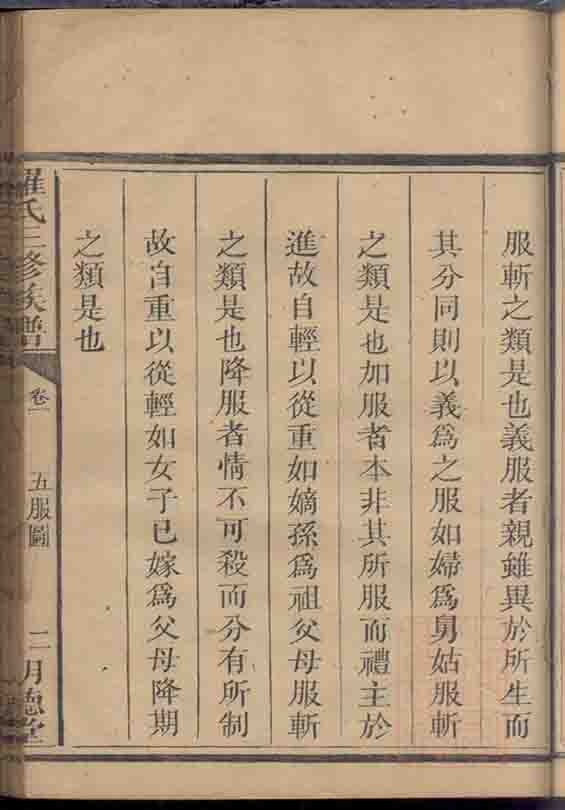 服斬之類是也義服者親雖異於所生而
其分同則以義爲之服如婦爲舅姑服斬
之類是也加服者本非其所服而禮主於
進故自輕以從重如嫡孫爲祖父母服斬
之類是也降服者情不可殺而分有所制
故自重以從輕如女子已嫁爲父母降期
之類是也
羅氏三修族譜
卷一
五服圖
二
明德堂